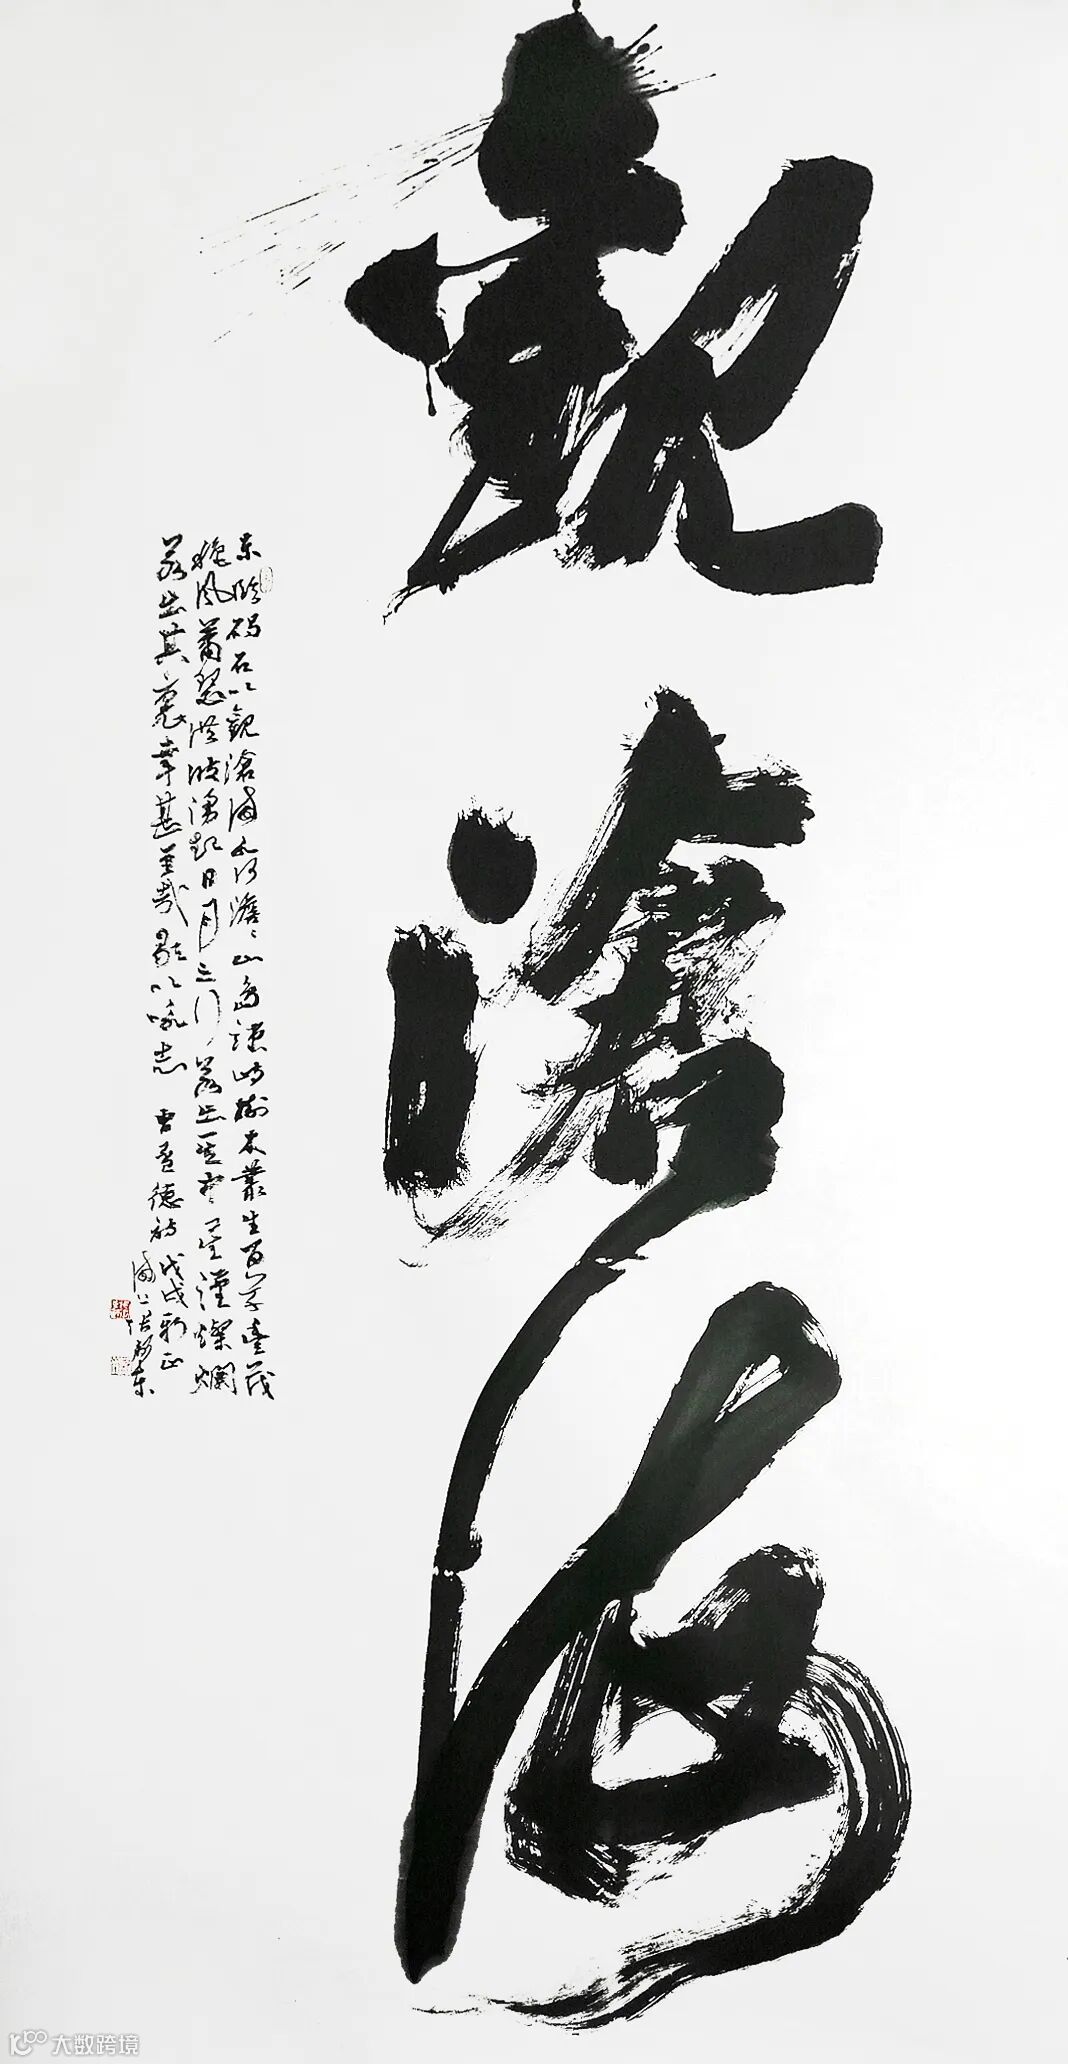 觀滄海
東臨碣石以觀滄海水何澹々山島竦峙樹木叢生百草豐茂
秋風蕭瑟洪波湧起日月之行若出其中星漢燦爛
若出其裏幸甚至哉歌以咏志 曹孟德詩戊戌
大数跨境